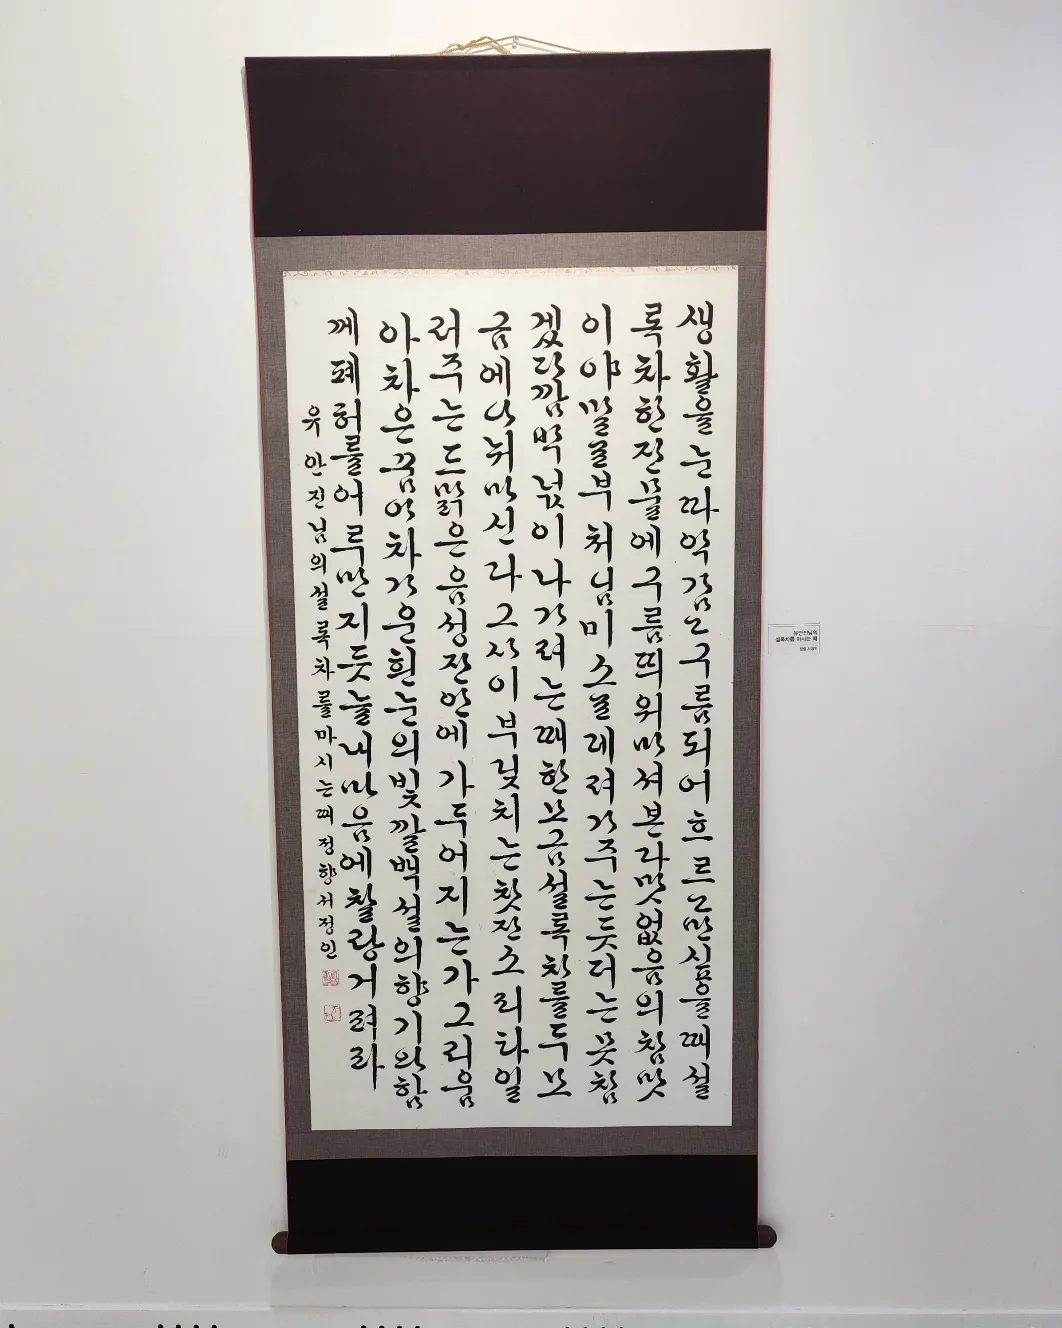 생활을눈따악감고구름되어흐르고만싶을때설
록차한잔물에구름띄워마셔본다맛없음의참맛
이야말로부처님미소로데려가주는듯더는못참
겠다깜박넋이나가려는때한모금설록차를두모
금에나눠마신다그사이부딪치는찻잔소리타일
러주는드맑은음성잔안에가두어지는가그리움
아차은꿈아차가운흰눈의빛깔백설의향기와함
께폐허를어루만지듯늘내마음에찰랑거려라
유안진님의설록차를마시는때정향서정인
유안진님의
설록차를 마시는 때